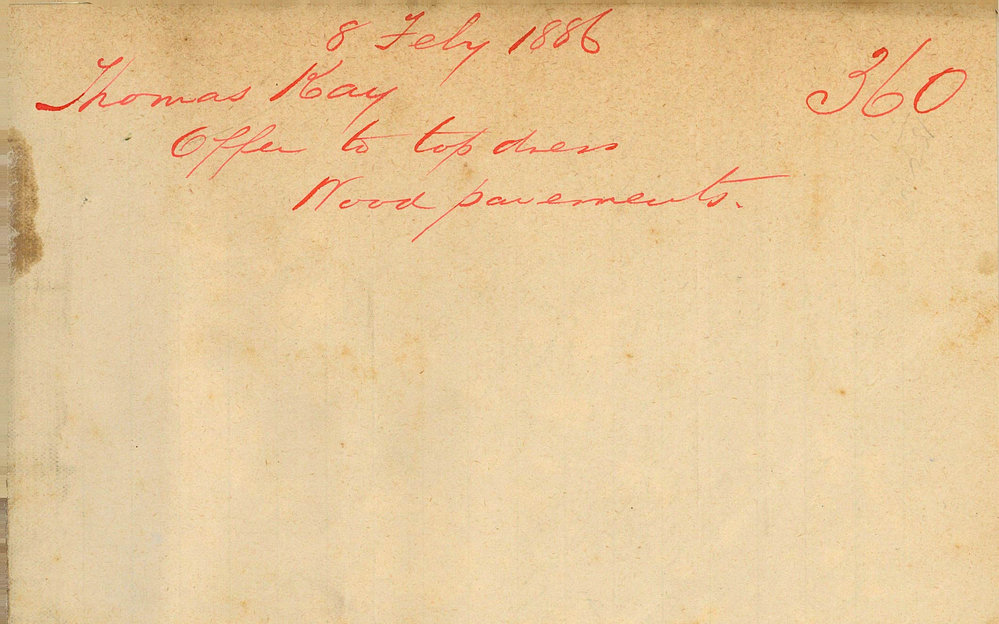 8 Feby 1886
Thomas Kay 360
Offer to top dress
Wood pavements.